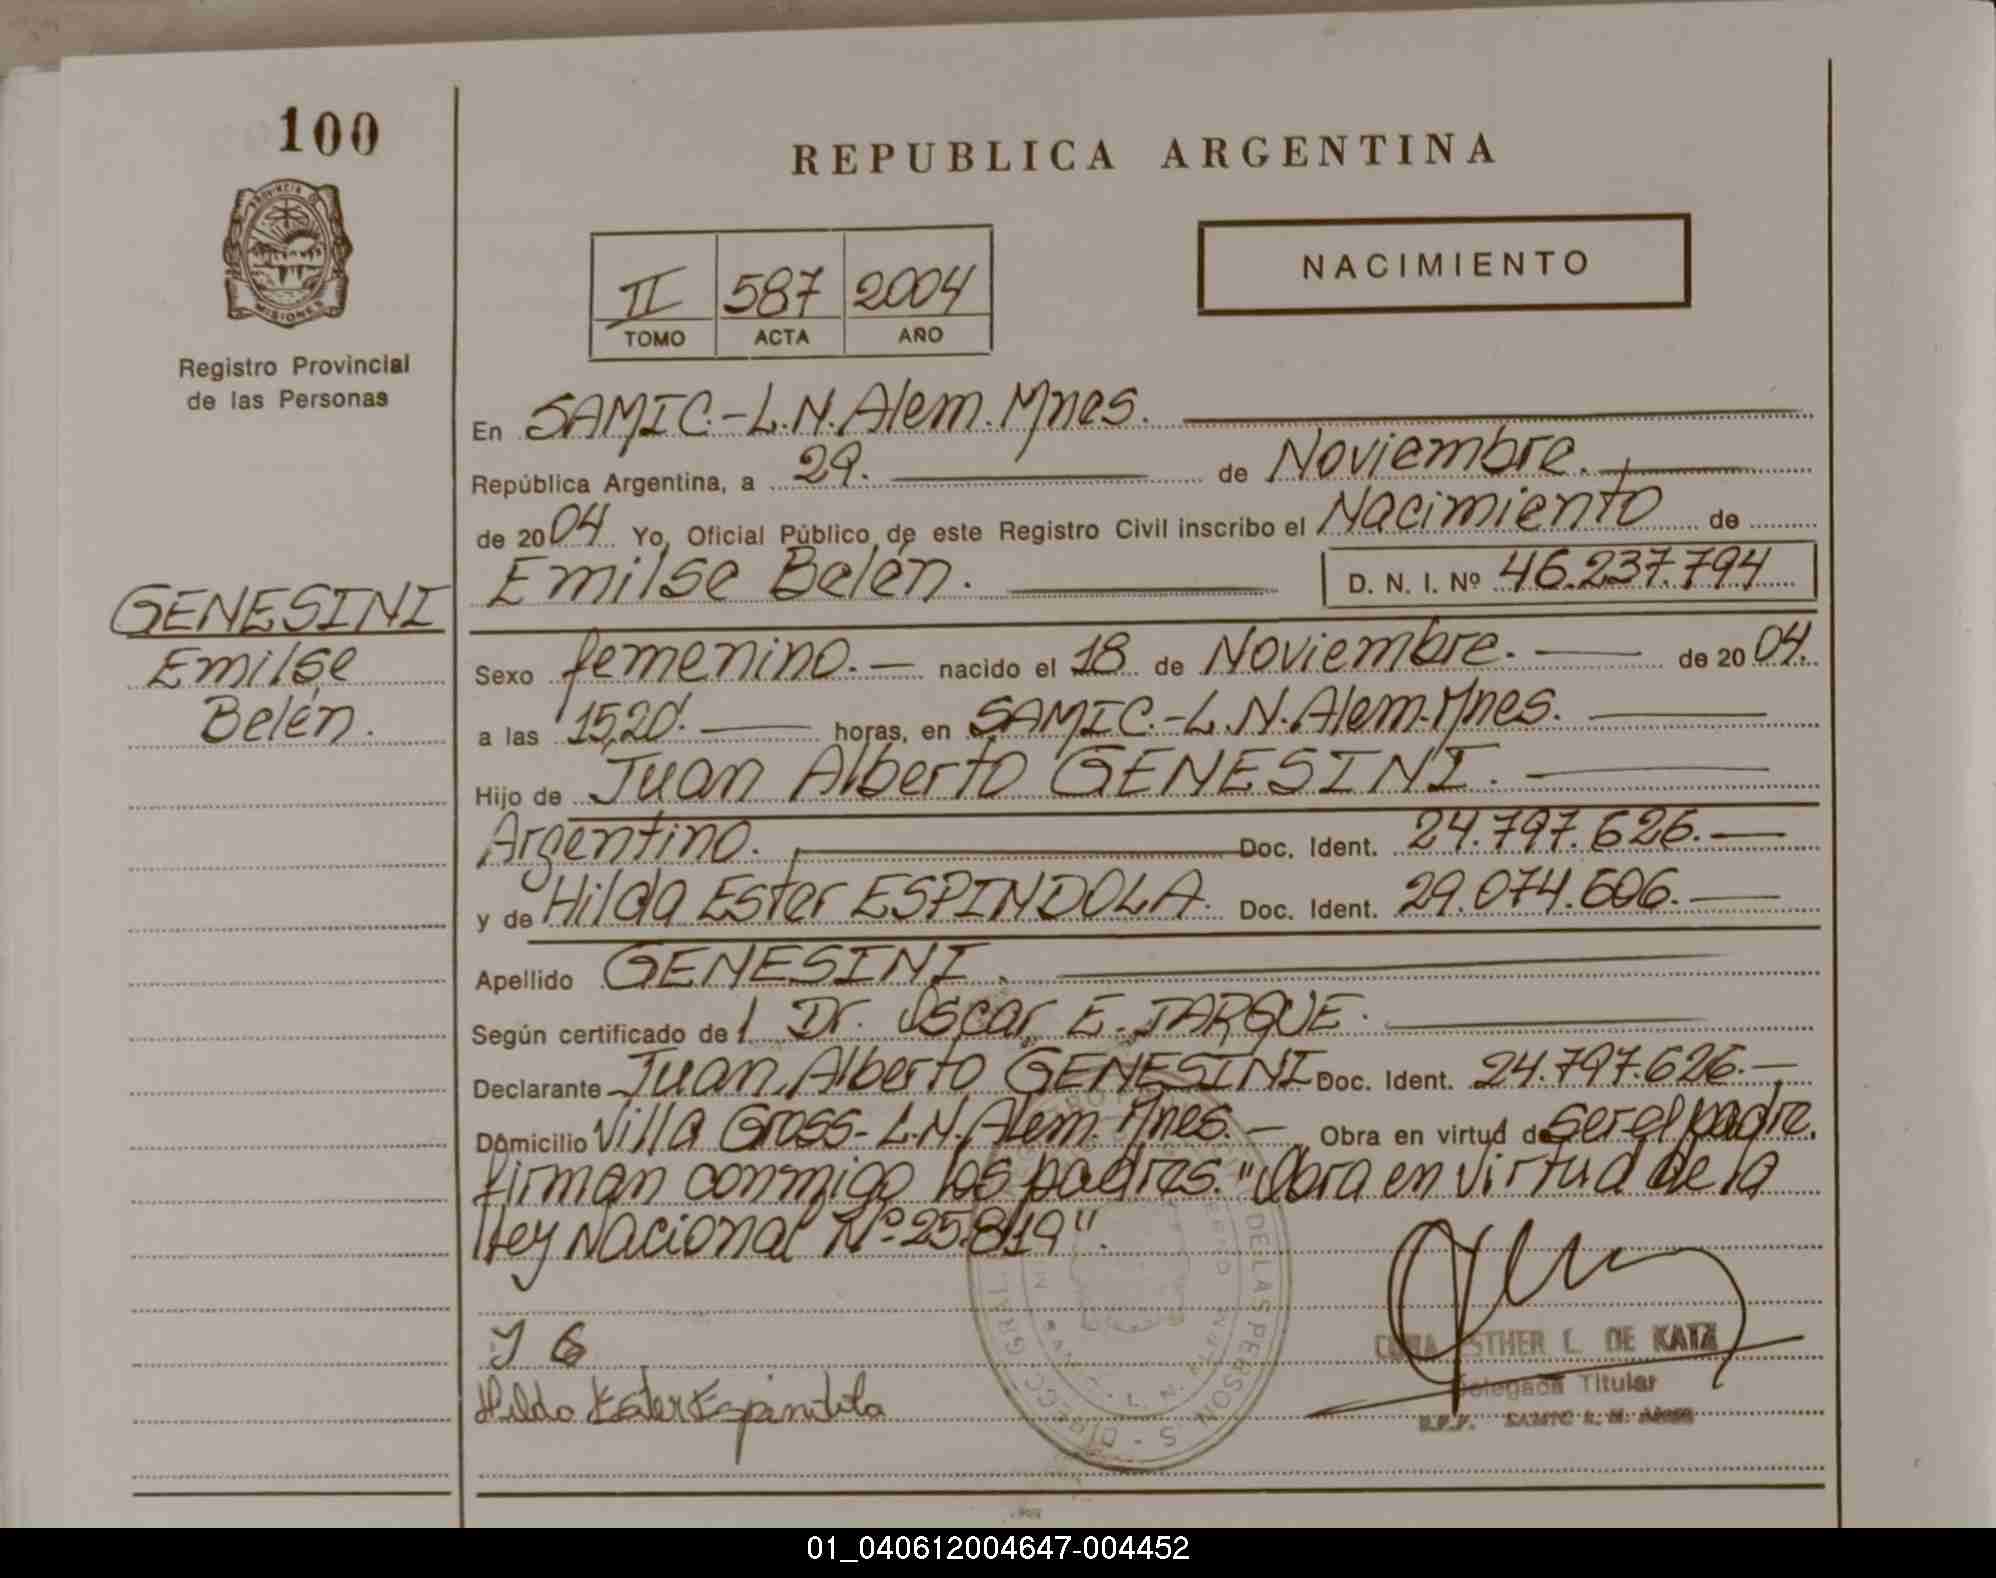 100
REPUBLICA ARGENTINA
PROVINCIA DE
MISIONES
Registro Provincial
de las Personas
II 587 2004
TOMO ACTA AÑO
NACIMIENTO
En SAMIC.-L.N.Alem.Mnes.
República Argentina, a 29. de Noviembre.
de 2004 Yo, Oficial Público de este Registro Civil inscribo el Nacimiento de
Emilse Belén. D. N. I. Nº 46.237.794
GENESINI
Emilse
Belén.
Sexo femenino.— nacido el 18 de Noviembre. de 2004.
a las 15,20. horas, en SAMIC.-L.N.Alem.Mnes.
Hijo de Juan Alberto GENESINI.
Argentino. Doc. Ident. 24.797.626.—
y de Hilda Ester ESPINDOLA. Doc. Ident. 29.074.606.—
Apellido GENESINI.
Según certificado de l Dr. Oscar E. JARQUE.
Declarante Juan Alberto GENESINI Doc. Ident. 24.797.626.—
Domicilio Villa Gross-L.N.Alem.Mnes.— Obra en virtud de ser el padre.
firman conmigo los padres. "Obra en virtud de la
Ley Nacional Nº 25.819".
J G
Hilda Ester Espindola
ESTHER L. DE KATZ
Delegada Titular
SAMIC L. N. Alem
DE LAS PERSONAS - DIRECC. GRAL.
01_040612004647-004452